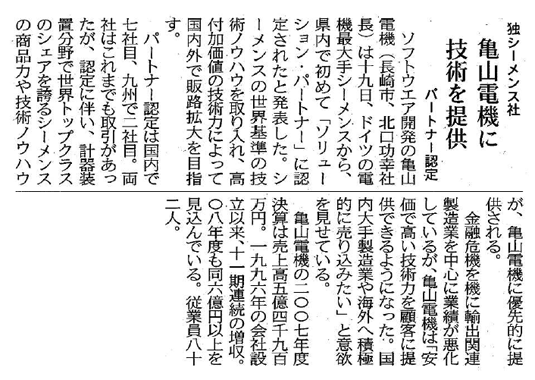 独シーメンス社
亀山電機に
技術を提供
パートナー認定
ソフトウエア開発の亀山
電機（長崎市、北口功幸社
長）は十九日、ドイツの電
機最大手シーメンスから、
県内で初めて「ソリュー
ション・パートナー」に認
定されたと発表した。シ
ーメンスの世界基準の技
術ノウハウを取り入れ、高
付加価値の技術力によって
国内外で販路拡大を目指
す。
パートナー認定は国内で
七社目、九州で二社目。両
社はこれまでも取引があっ
たが、認定に伴い、計器装
置分野で世界トップクラス
のシェアを誇るシーメンス
の商品力や技術ノウハウ
が、亀山電機に優先的に提
供される。
金融危機を機に輸出関連
製造業を中心に業績が悪化
しているが、亀山電機は「安
価で高い技術力を顧客に提
供できるようになった。国
内大手製造業や海外へ積極
的に売り込みたい」と意欲
を見せている。
亀山電機の二〇〇七年度
決算は売上高五億四千九百
万円。一九九六年の会社設
立以来、十一期連続の増収。
〇八年度も同六億円以上を
見込んでいる。従業員八十
二人。